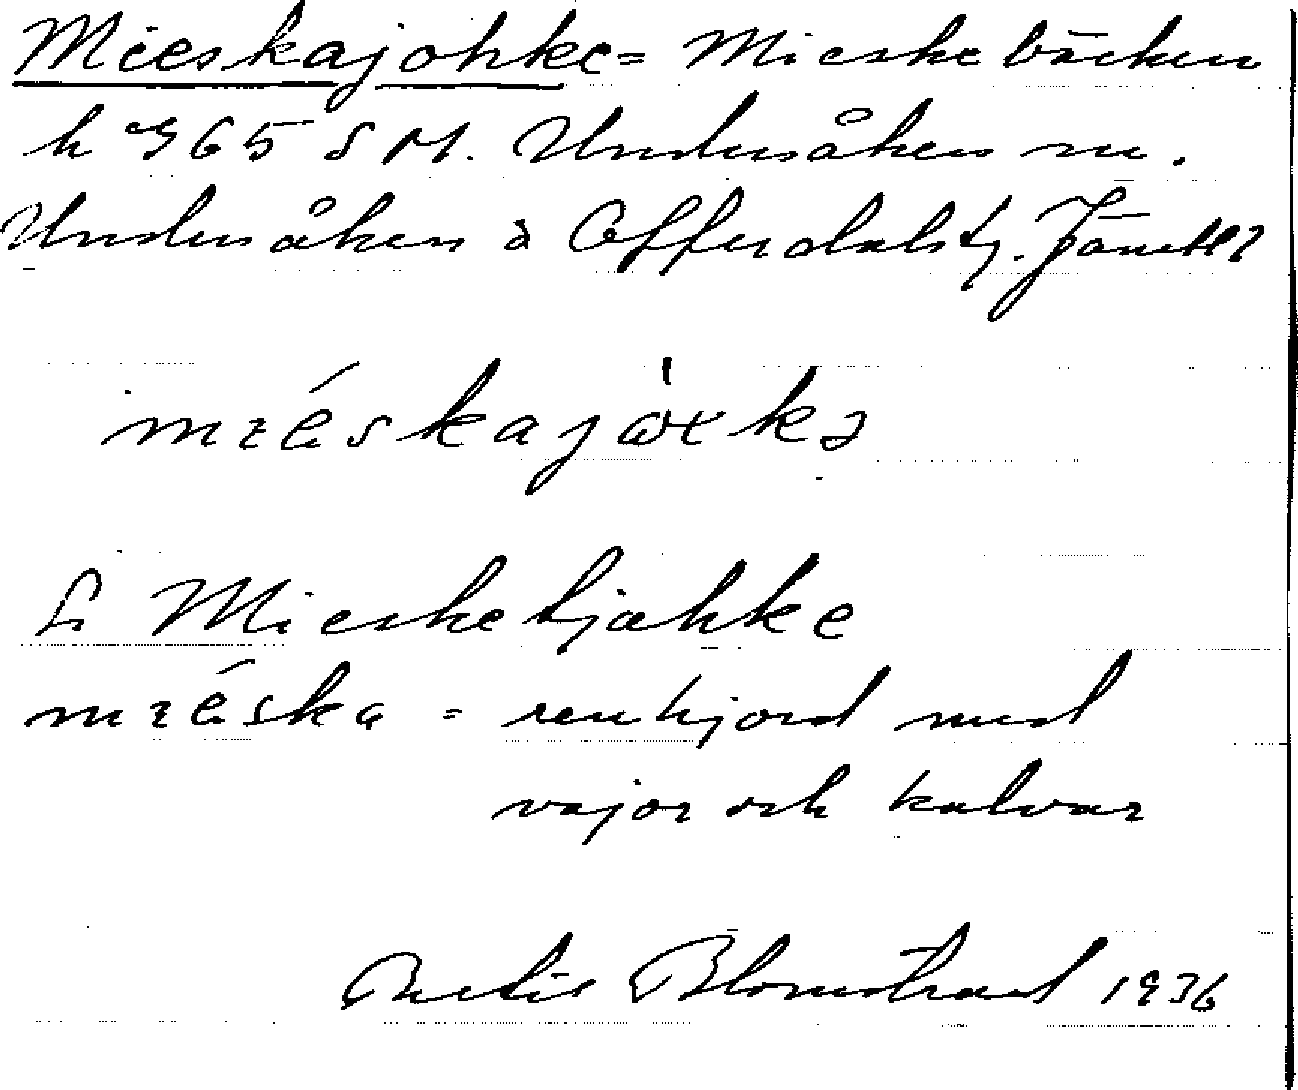 Mieskajohke = Mieskebäcken
h 965 S M. Undersåkers sn.
Undersåkers o Offerdals tg. Jämtl
mɪéskajòɛkə
L. Miesketjahke
mɪéska = renhjord med
vajor och kalvar
Bertil Blomstrand 1936